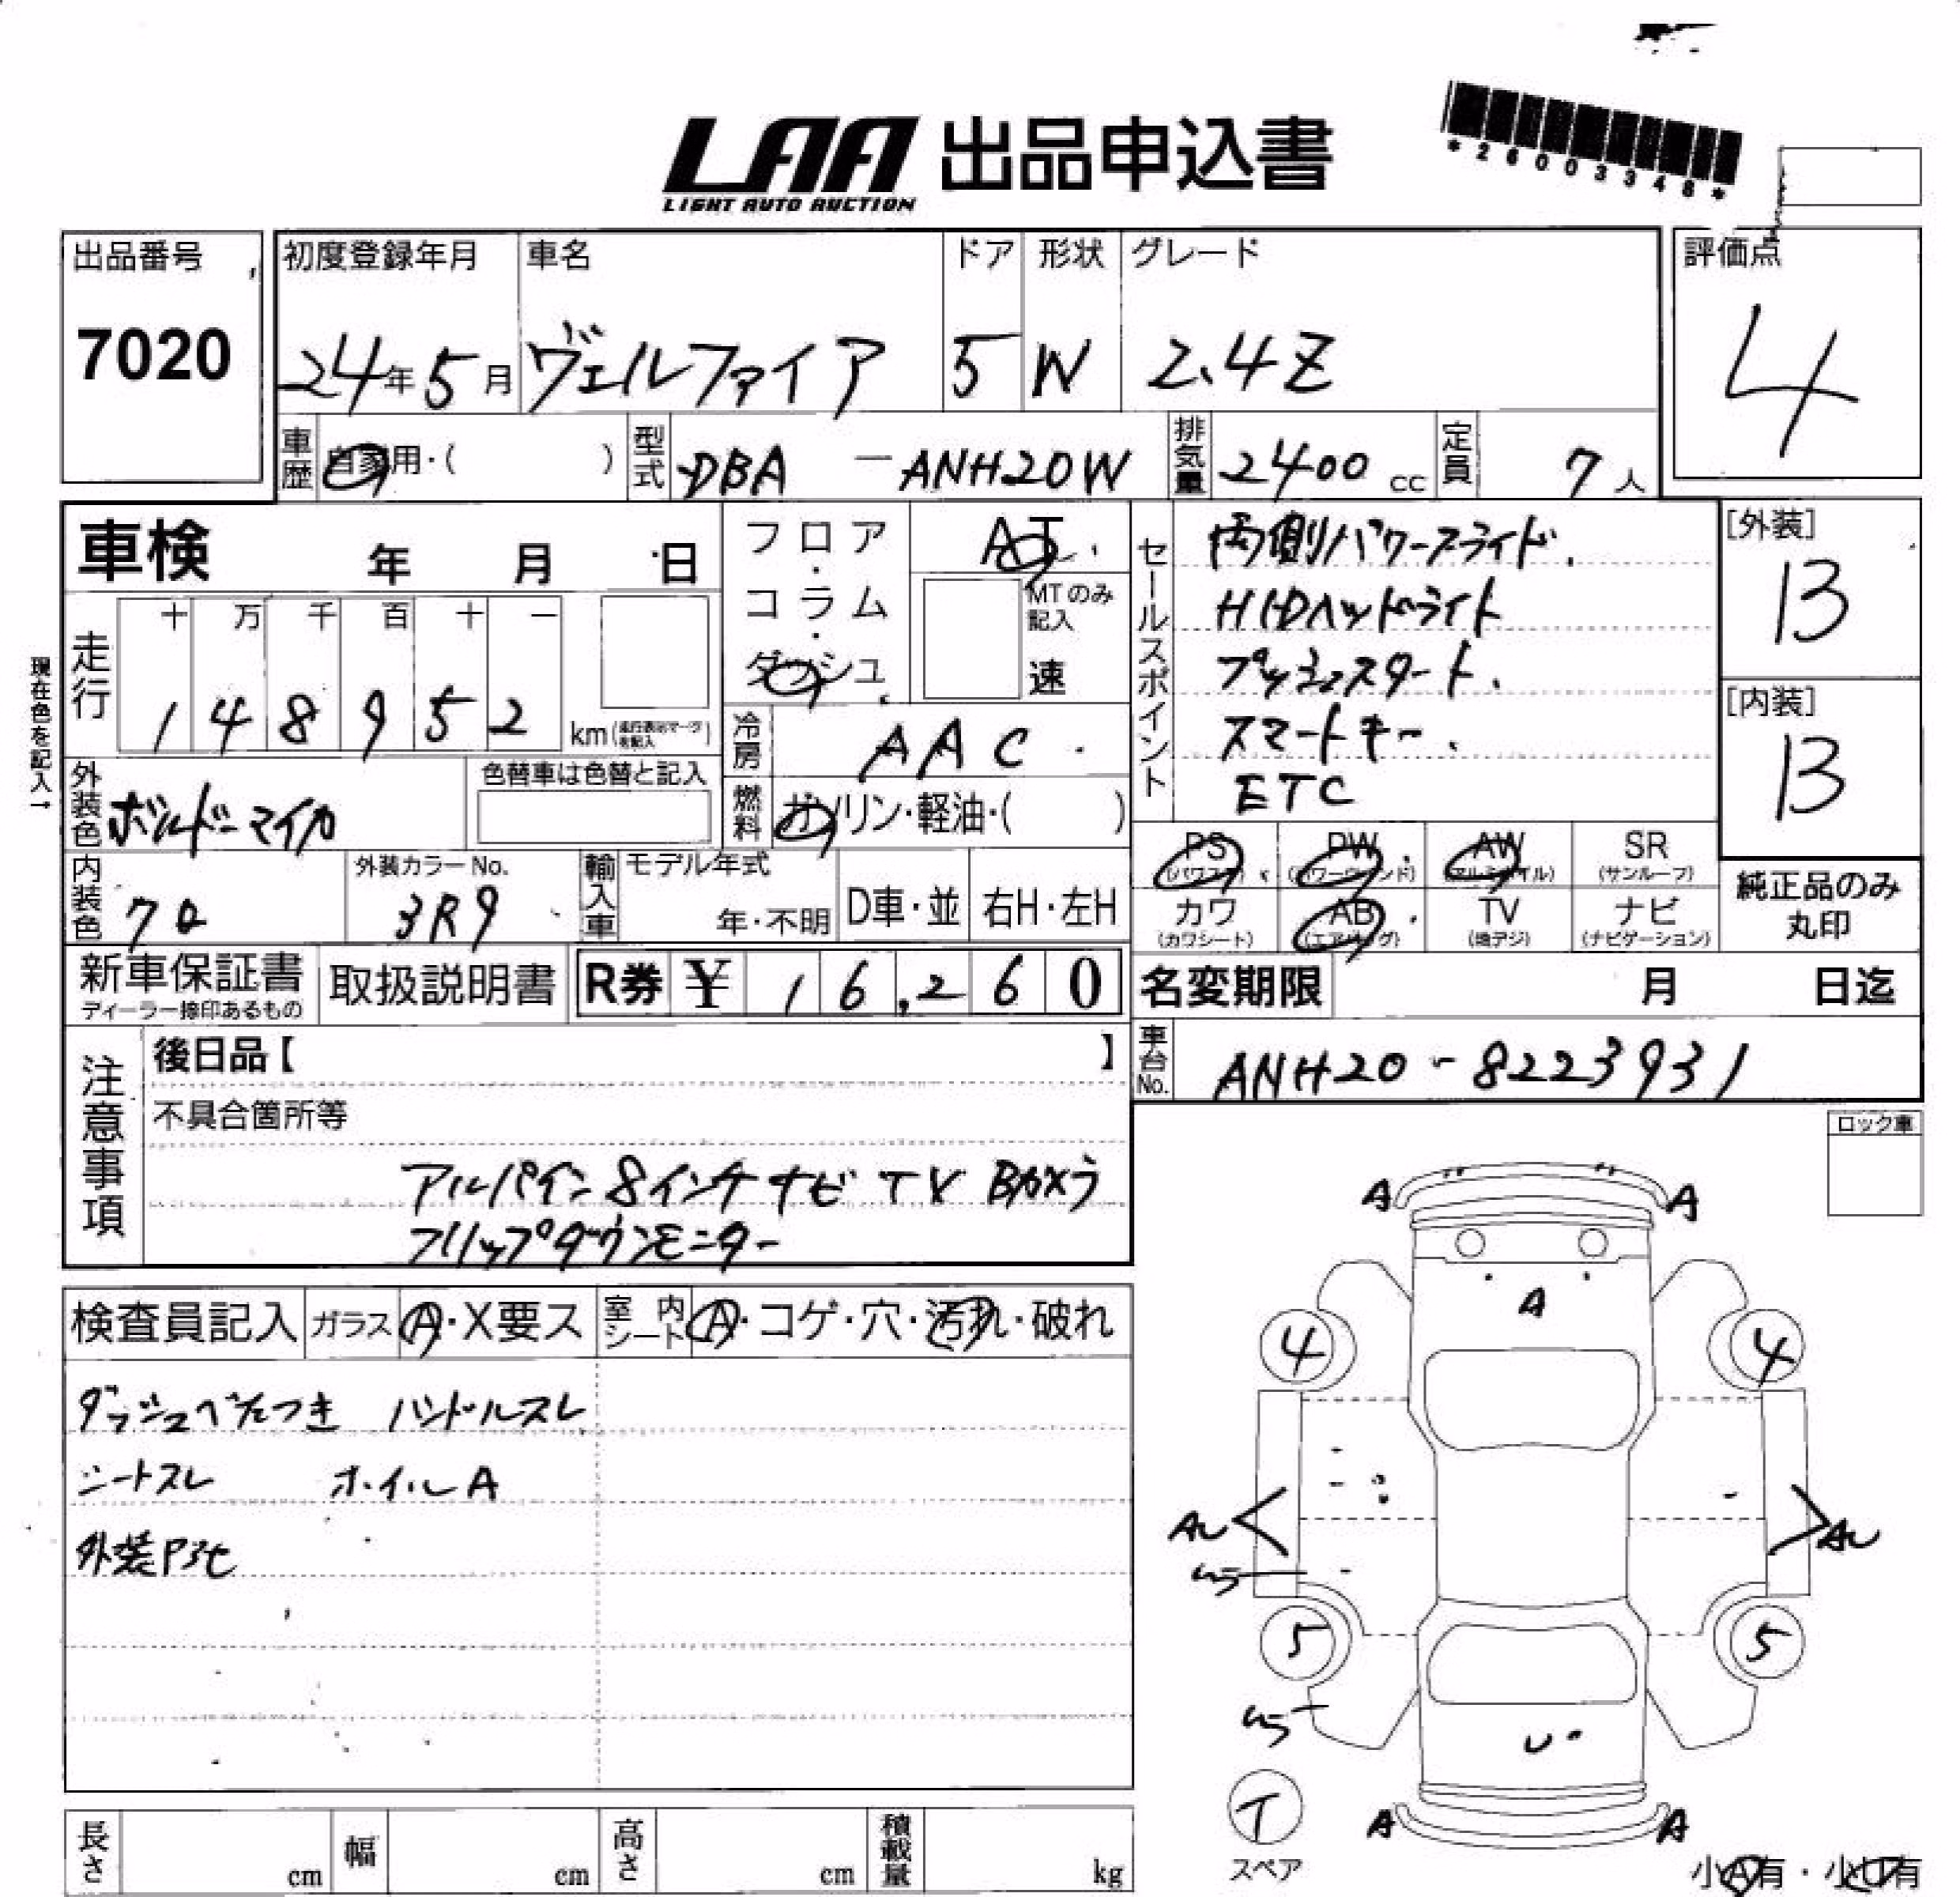 LAA 出品申込書
LIGHT AUTO AUCTION
*26003348*
出品番号
7020
初度登録年月
24年5月
車名
ヴェルファイア
ドア
5
形状
W
グレード
2.4Z
評価点
4
車歴
自家用・( )
型式
DBA - ANH20W
排気量
2400 cc
定員
7人
車検 年 月 日
フロア・コラム・ダッシュ
AT
MTのみ記入
速
セールスポイント
両側パワースライド.
HIDヘッドライト
プッシュスタート.
スマートキー.
ETC
[外装]
B
[内装]
B
現在色を記入→
走行
十 万 千 百 十 一
1 4 8 9 5 2
km(走行表示マークを記入)
冷房
AAC
燃料
ガソリン・軽油・( )
外装色
ボルドーマイカ
色替車は色替と記入
内装色
70
外装カラーNo.
3R9
輸入車
モデル年式
年・不明
D車・並
右H・左H
PS
(パワステ)
PW
(パワーウィンド)
AW
(アルミホイル)
SR
(サンルーフ)
カワ
(カワシート)
AB
(エアバッグ)
TV
(地デジ)
ナビ
(ナビゲーション)
純正品のみ
丸印
新車保証書
ディーラー捺印あるもの
取扱説明書
R券 ¥ 16,260
名変期限 月 日迄
車台No.
ANH20-8223931
注意事項
後日品【 】
不具合箇所等
アルパイン8インチナビ TV Bカメラ
フリップダウンモニター
ロック車
検査員記入
ガラス
A・X要ス
室内シート
A・コゲ・穴・汚れ・破れ
ダッシュベタつき ハンドルスレ
シートスレ ホイルA
A A
A
4 4
AU AU
ムラ
5 5
ムラ
U
A A
T
スペア
小A有・小U有
長さ cm
幅 cm
高さ cm
積載量 kg